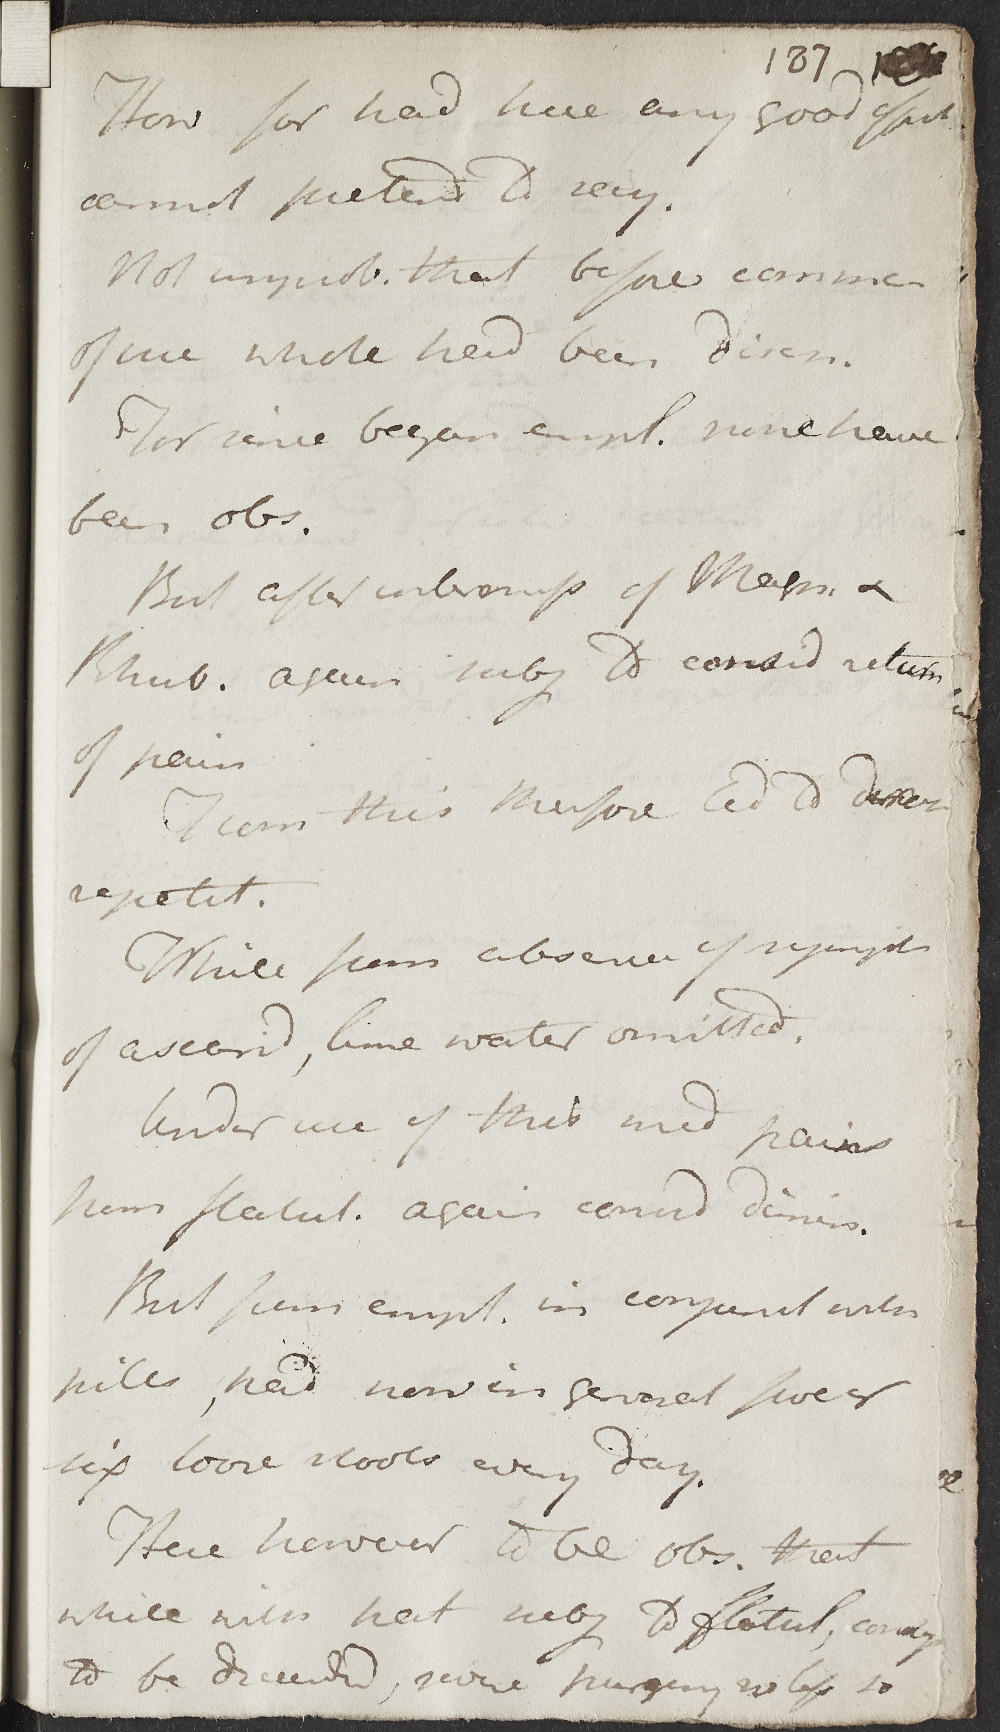 187
How far had here any good effect
cannot pretend to say.
Not improb. that before commen
of use whole had been disch.
For since began empl. none have
been obs.
But after interomiss of Magn. &
Rhub. again subj to consid return
of pain
From this therefore led to
repetit.
While from absence of sympt
of ascarid, lime water omitted.
Under use of this med pains
from flatul. again consid dimin.
But from empl. in conjunct with
pills, had now in general five or
six loose stools every day.
Here however to be obs. that
while with pat subj to flatul,
to be dreaded, severe purging no less so